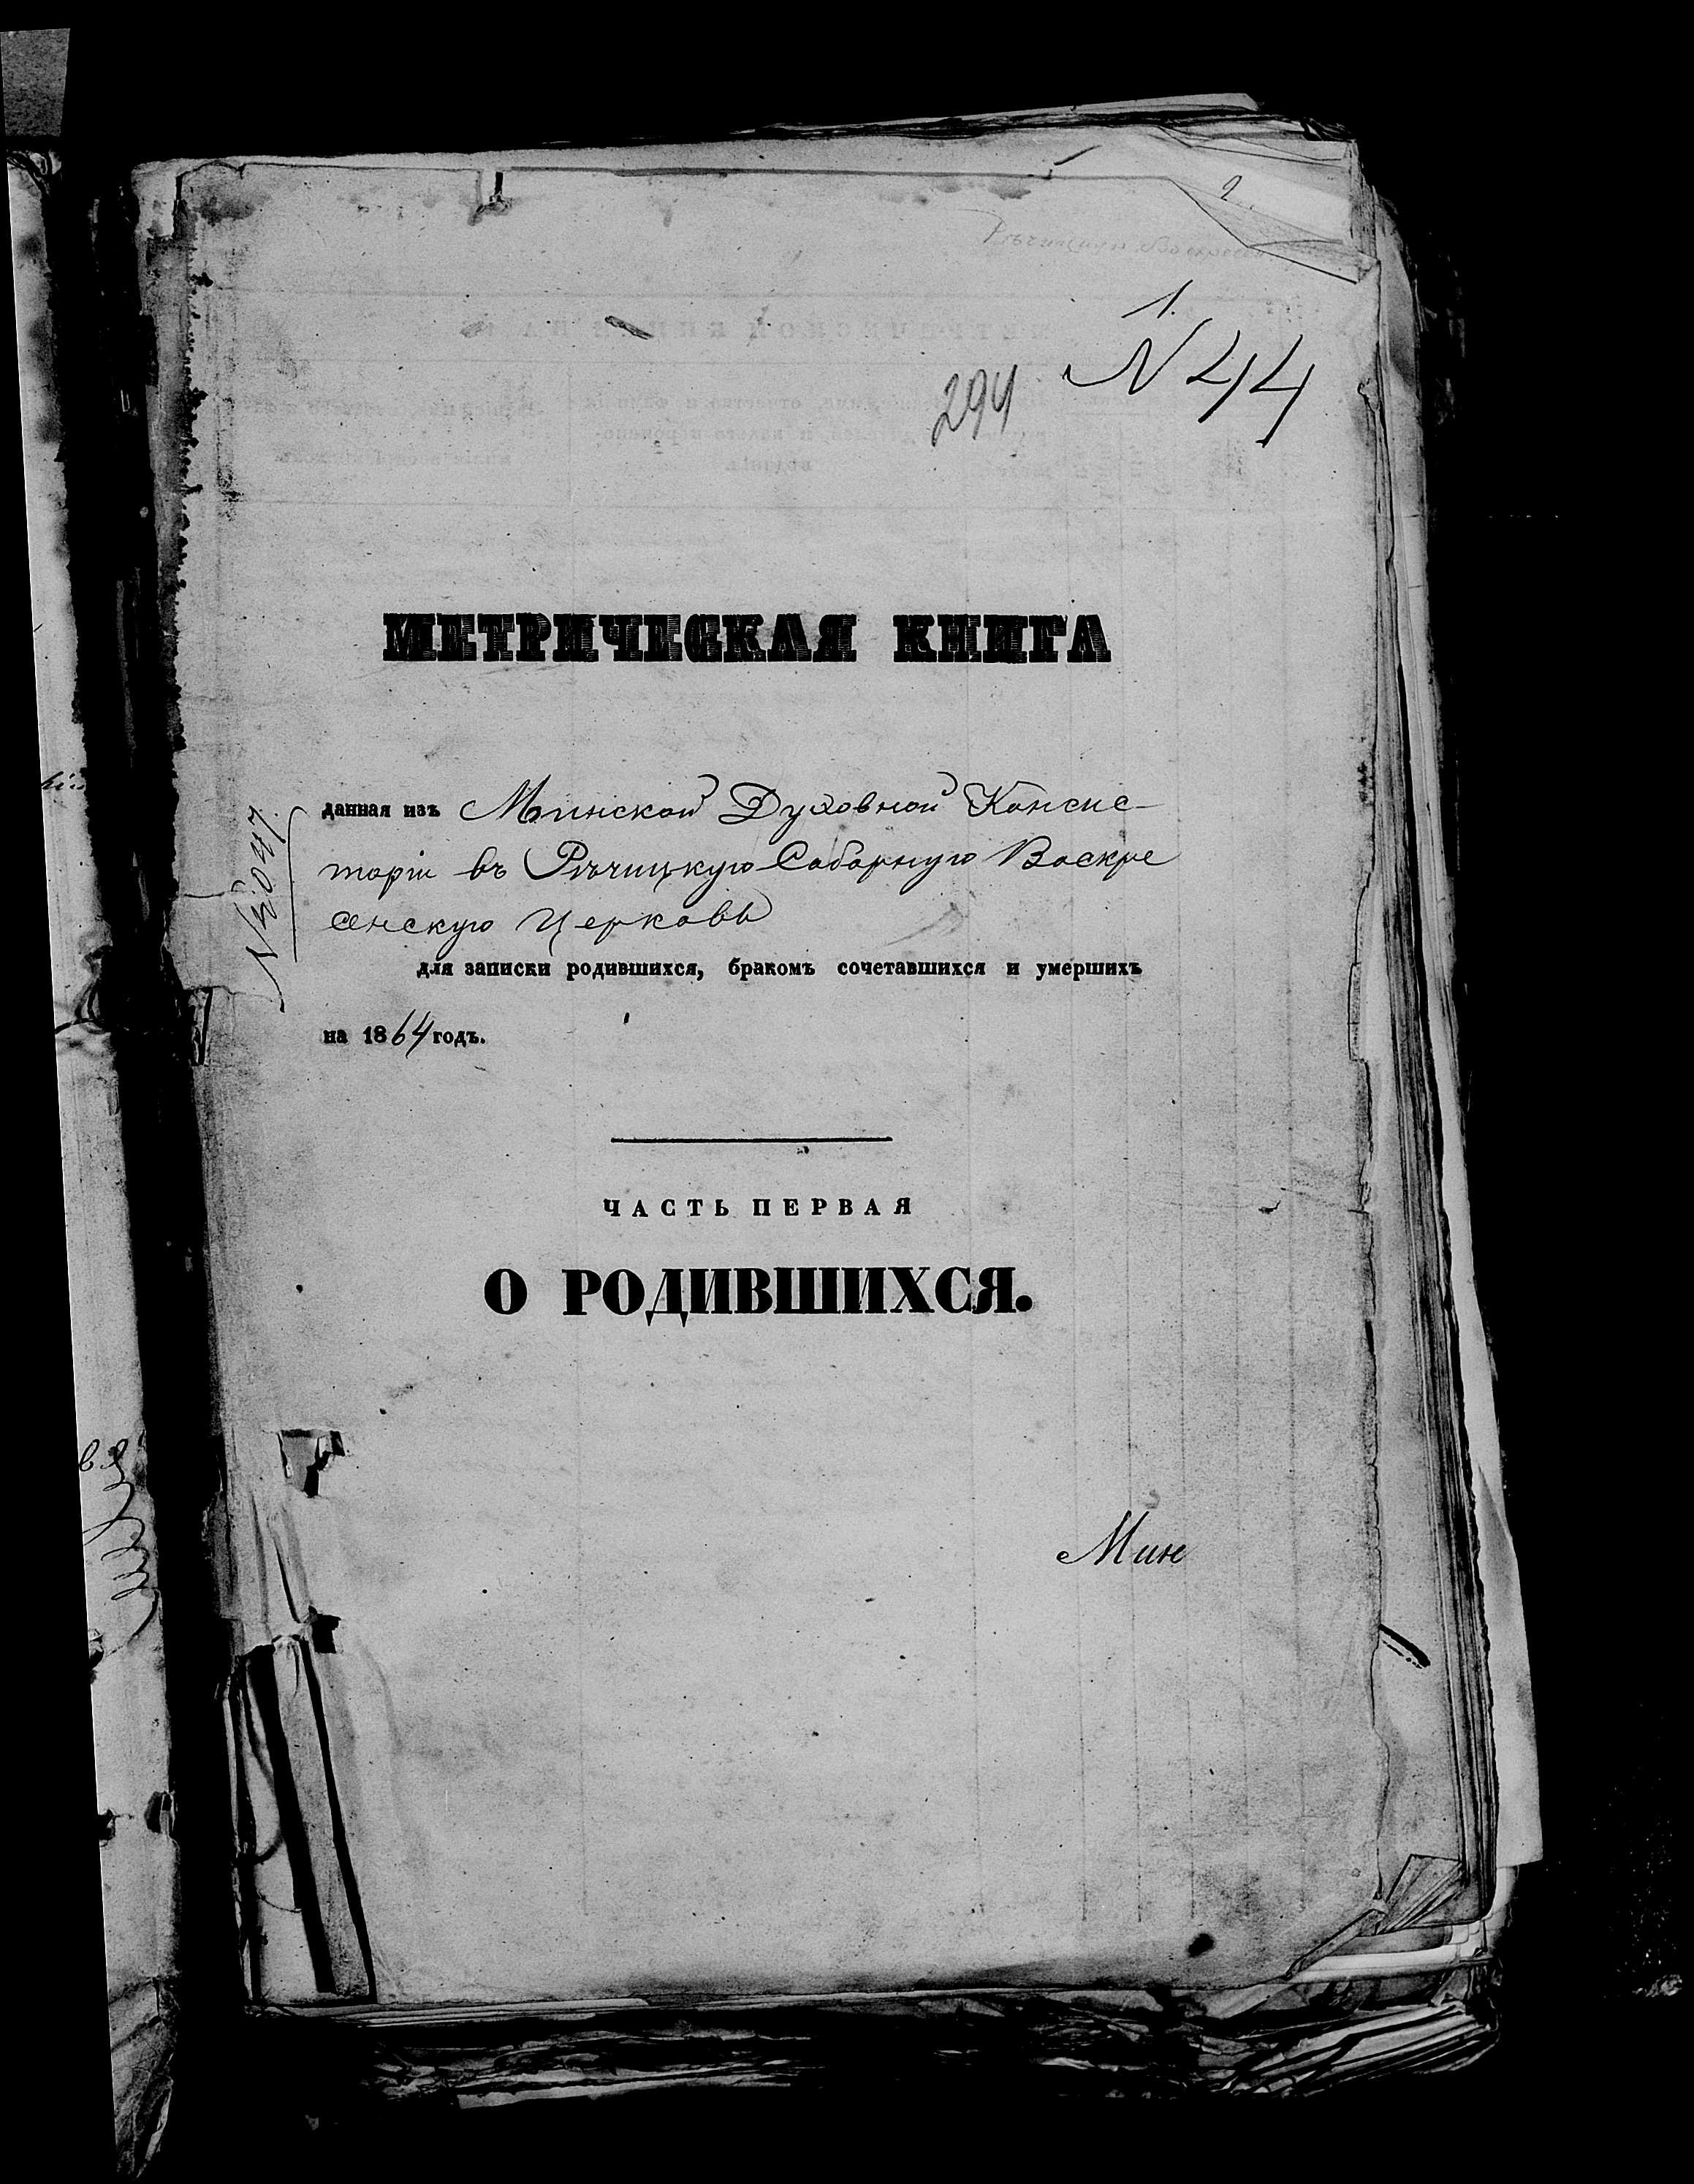 2.
Рѣчицкую Воскресен
1.
N 44
294
МЕТРИЧЕСКАЯ КНИГА
данная изъ Минской Духовной Консис-
торіи въ Рѣчицкую Соборную Воскре
сенскую Церковь
для записки родившихся, бракомъ сочетавшихся и умершихъ
на 1864 годъ.
ЧАСТЬ ПЕРВАЯ
О РОДИВШИХСЯ.
Мин
вя